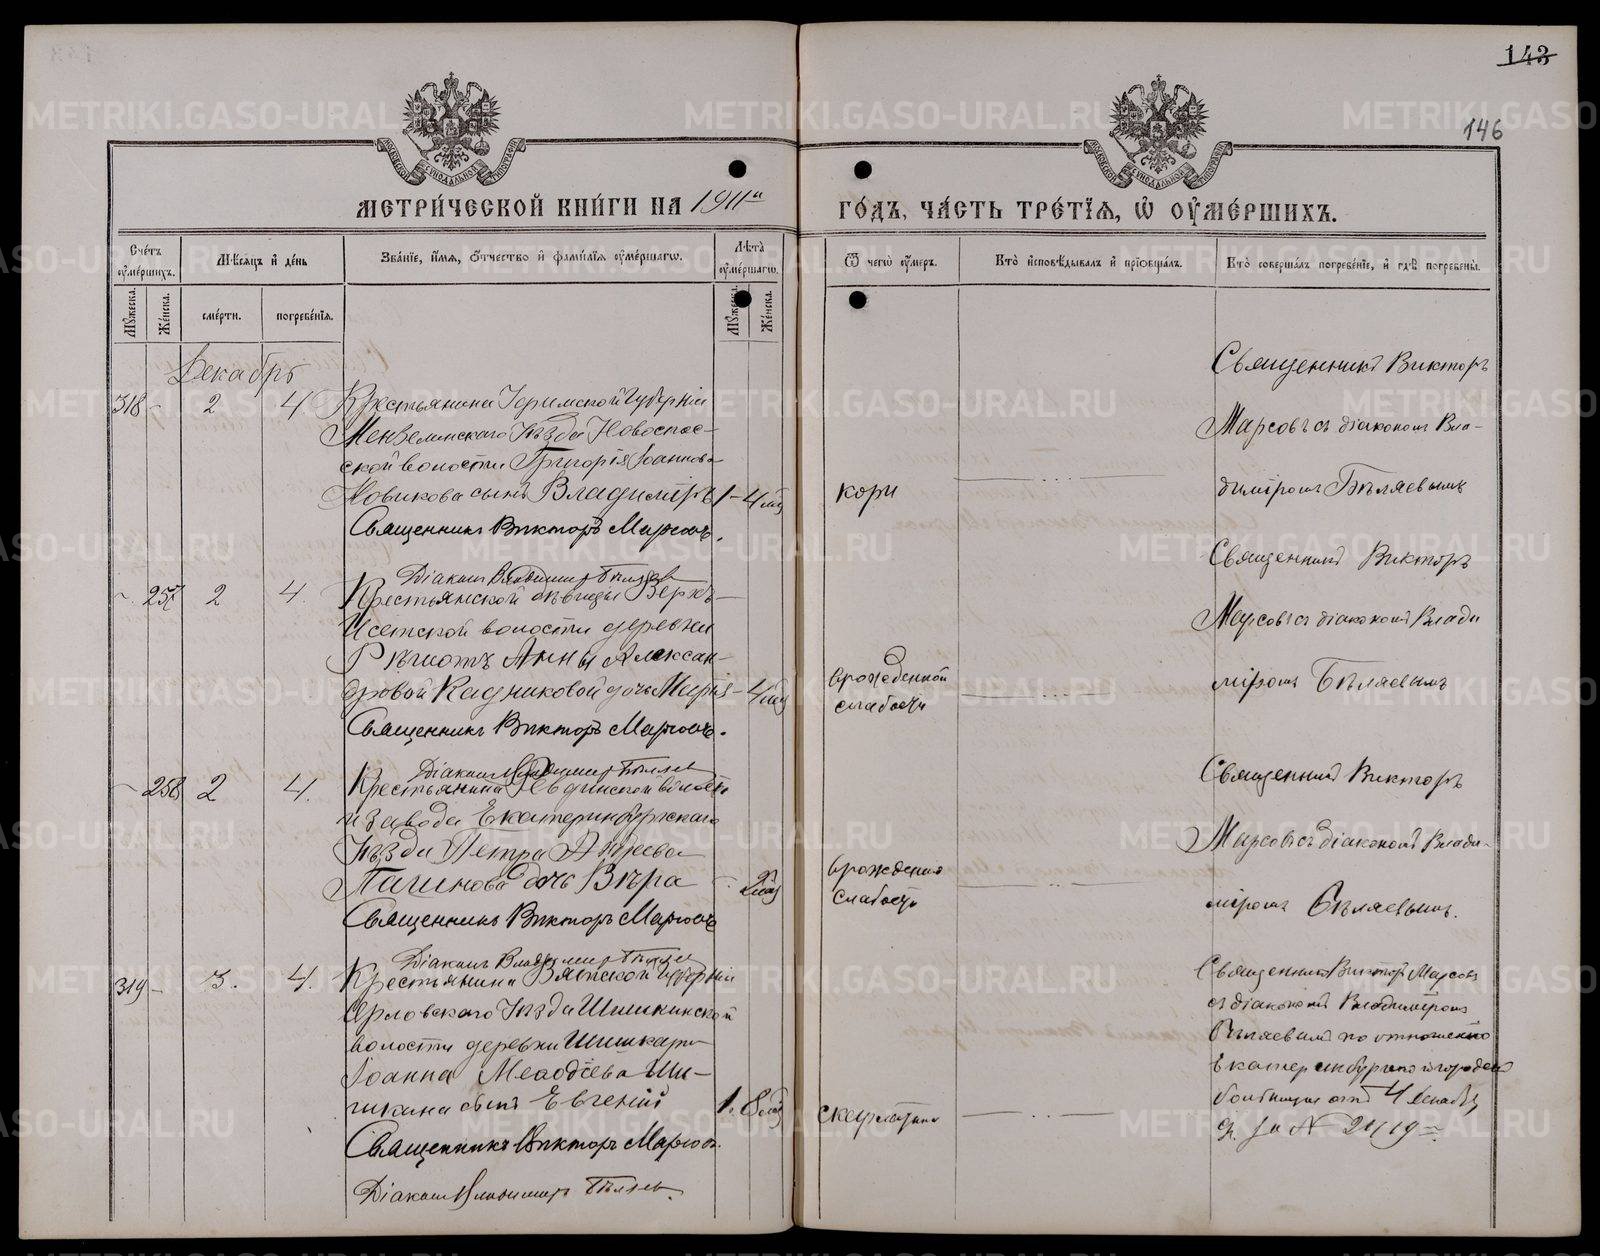 143
146
МЕТРИ́ЧЕСКОЙ КНИ́ГИ НА 1911й
ГО́ДЪ, ЧА́СТЬ ТРЕ́ТІѦ, Ѡ ОУМЕ́РШИХЪ.
Сче́тъ оуме́ршихъ.
Мѣ́сѧцъ и де́нь
Зва́нїе, и́мѧ, о́тчество и фамилїѧ оуме́ршагѡ.
Лѣта̀ оуме́ршагѡ.
Ѿ чегѡ̀ оу́меръ.
Кто̀ исповѣ́дывалъ и прїобща́лъ.
Кто̀ соверша́лъ погребе́нїе, и гдѣ̀ погребены̀.
Му́жеска.
Же́нска.
сме́рти.
погребе́нїѧ.
Му́жеска.
Же́нска.
Декабрь
318 - 2 4
Крестьянина Губерніи
Мензелинскаго Уѣзда Новоспас-
ской волости Григорія Іоаннова
Новикова сынъ Владиміръ 1 - 4
Священникъ Викторъ Марсовъ.
Діаконъ Владимиръ Бѣляевъ
кори
Священникъ Викторъ
Марсовъ съ діакономъ Вла-
диміромъ Бѣляевымъ
257 2 4.
Крестьянской дѣвицы Верхъ-
Исетской волости деревни
Рѣшотъ Анны Алексан-
дровой Кадниковой дочь Марія - 4
Священникъ Викторъ Марсовъ.
Діаконъ Владимиръ Бѣляевъ
врожденной
слабости
Священникъ Викторъ
Марсовъ съ діакономъ Влади
міромъ Бѣляевымъ
258 2 4.
Крестьянина Невьянской волости
и завода Екатеринбургскаго
Уѣзда Петра
дочь Вѣра 2
Священникъ Викторъ Марсовъ
Діаконъ Владимиръ Бѣляевъ
врожденной
слабости
Священникъ Викторъ
Марсовъ съ діакономъ Влади-
міромъ Бѣляевымъ.
319 - 3. 4.
Крестьянина Вятской Губерніи
Орловскаго Уѣзда Шишкинской
волости деревни
Іоанна Меѳодіева Ши-
сынъ Евгеній 1. 8
Священникъ Викторъ Марсовъ.
Діаконъ Владимиръ Бѣляевъ.
скарлатина
Священникъ Викторъ Марсовъ
съ діакономъ Владиміромъ
Бѣляевымъ по отношенію
Екатеринбургской городской
больницы отъ 4 Декабря
за № 2419